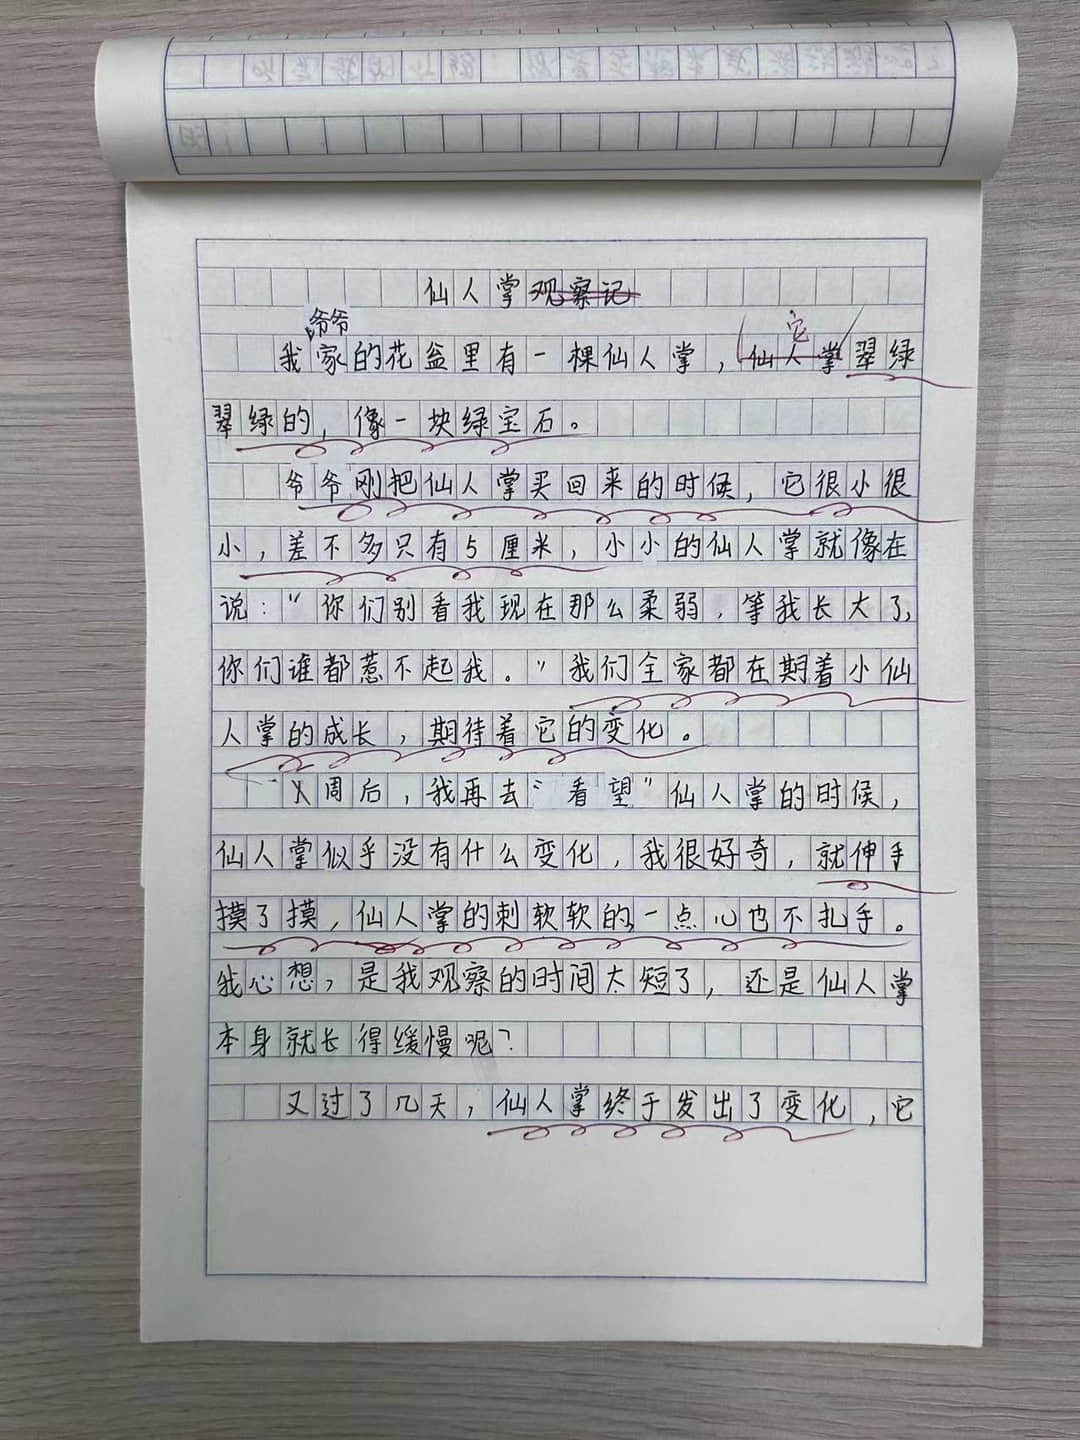 仙人掌观察记
爷爷
它
我家的花盆里有一棵仙人掌，仙人掌翠绿
翠绿的，像一块绿宝石。
爷爷刚把仙人掌买回来的时候，它很小很
小，差不多只有5厘米，小小的仙人掌就像在
说：“你们别看我现在那么柔弱，等我长大了，
你们谁都惹不起我。”我们全家都在期着小仙
人掌的成长，期待着它的变化。
周后，我再去“看望”仙人掌的时候，
仙人掌似乎没有什么变化，我很好奇，就伸手
摸了摸，仙人掌的刺软软的，一点心也不扎手。
我心想，是我观察的时间太短了，还是仙人掌
本身就长得缓慢呢？
又过了几天，仙人掌终于发出了变化，它